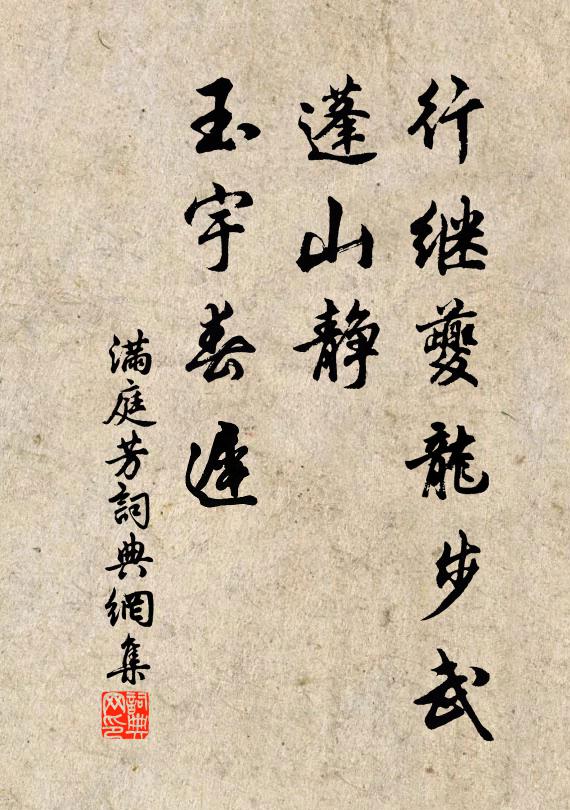 行继夔龍步武
蓬山静
玉宇春遲
满庭芳詞典網集
詞典网印